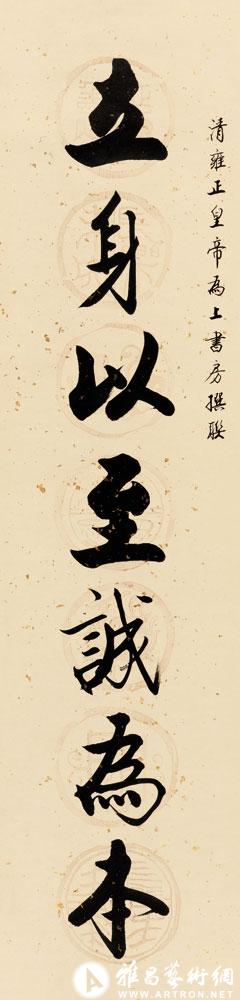 清雍正皇帝為上書房撰聯
立身以至誠為本
雅昌藝術網
WWW.ARTRON.NET